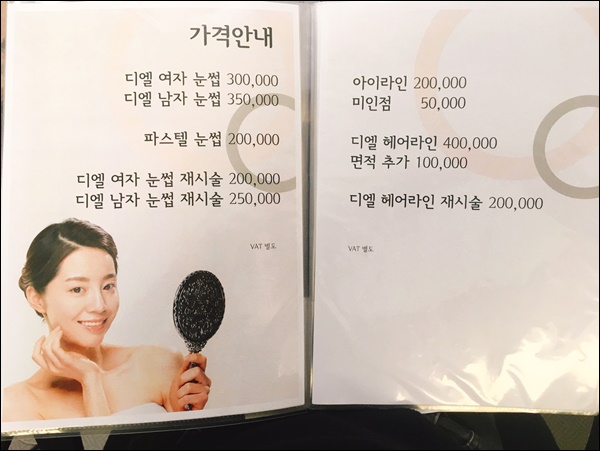 가격안내
디엘 여자 눈썹 300,000
디엘 남자 눈썹 350,000
파스텔 눈썹 200,000
디엘 여자 눈썹 재시술 200,000
디엘 남자 눈썹 재시술 250,000
VAT 별도
아이라인 200,000
미인점 50,000
디엘 헤어라인 400,000
면적 추가 100,000
디엘 헤어라인 재시술 200,000
VAT 별도